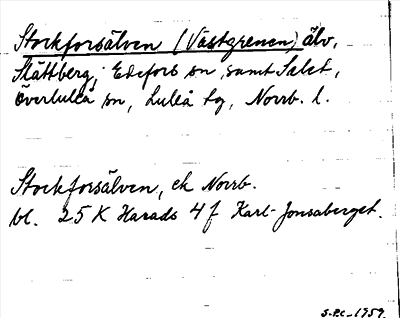 Stockforsälven (Västgrenen) älv,
Slättberg, Edefors sn, samt Salet,
Överluleå sn, Luleå tg, Norrb. l.
Stockforsälven, ek Norrb.
bl. 25 K Harads 4 f Karl-Jonsaberget.
S.P.C. 1959